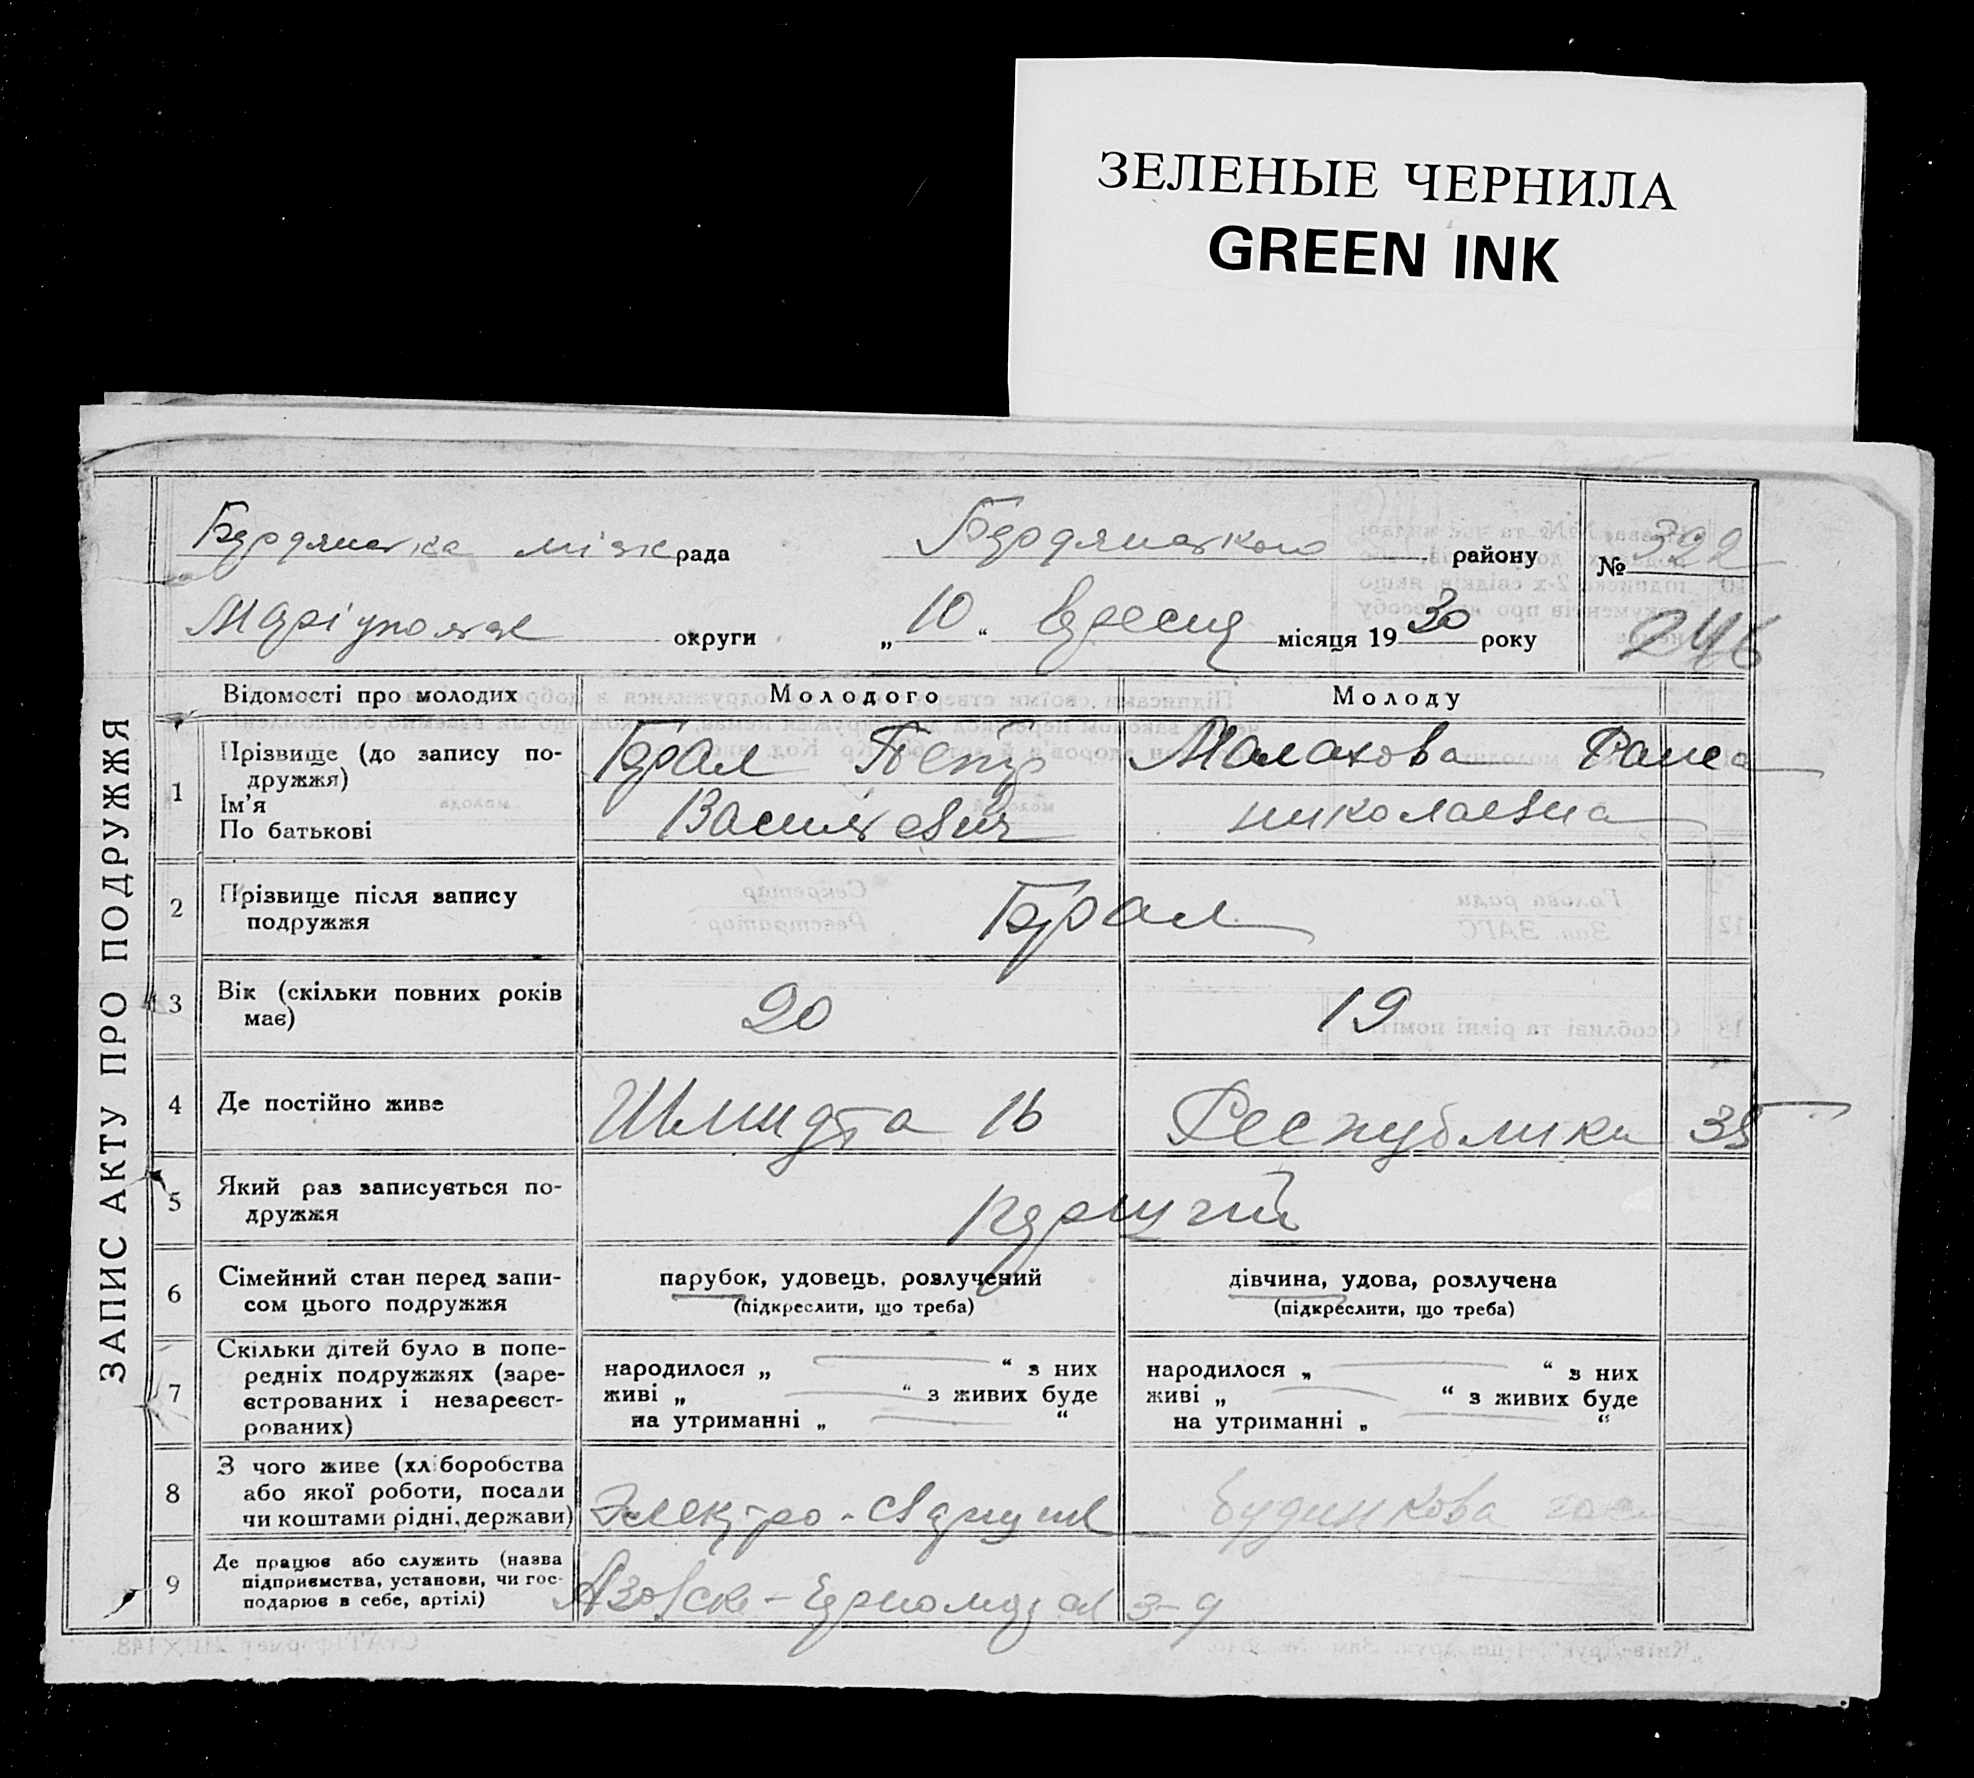 ЗЕЛЕНЫЕ ЧЕРНИЛА
GREEN INK
ЗАПИС АКТУ ПРО ПОДРУЖЖЯ
Бердянська міск рада Бердянського району № 322
Маріупольск округи „10“ вересня місяця 1930 року 246
Відомості про молодих Молодого Молоду
1 Прізвище (до запису по-
дружжя)
Ім'я
По батькові
Петр
Васильевич
Малахова Раиса
николаевна
2 Прізвище після запису
подружжя
3 Вік (скільки повних років
має)
20 19
4 Де постійно живе Шмидта 16 Республики 35
5 Який раз записується по-
дружжя
перший
6 Сімейний стан перед запи-
сом цього подружжя
парубок, удовець, розлучений
(підкреслити, що треба)
дівчина, удова, розлучена
(підкреслити, що треба)
7 Скільки дітей було в попе-
редніх подружжях (заре-
єстрованих і незареєст-
рованих)
народилося „ “ з них
живі „ “ з живих буде
на утриманні „ “
народилося „ “ з них
живі „ “ з живих буде
на утриманні „ “
8 З чого живе (хліборобства
або якої роботи, посади
чи коштами рідні, держави)
Электро-сварщик будинкова
9 Де працює або служить (назва
підприємства, установи, чи гос-
подарює в себе, артілі)
Азовске-Чорномор